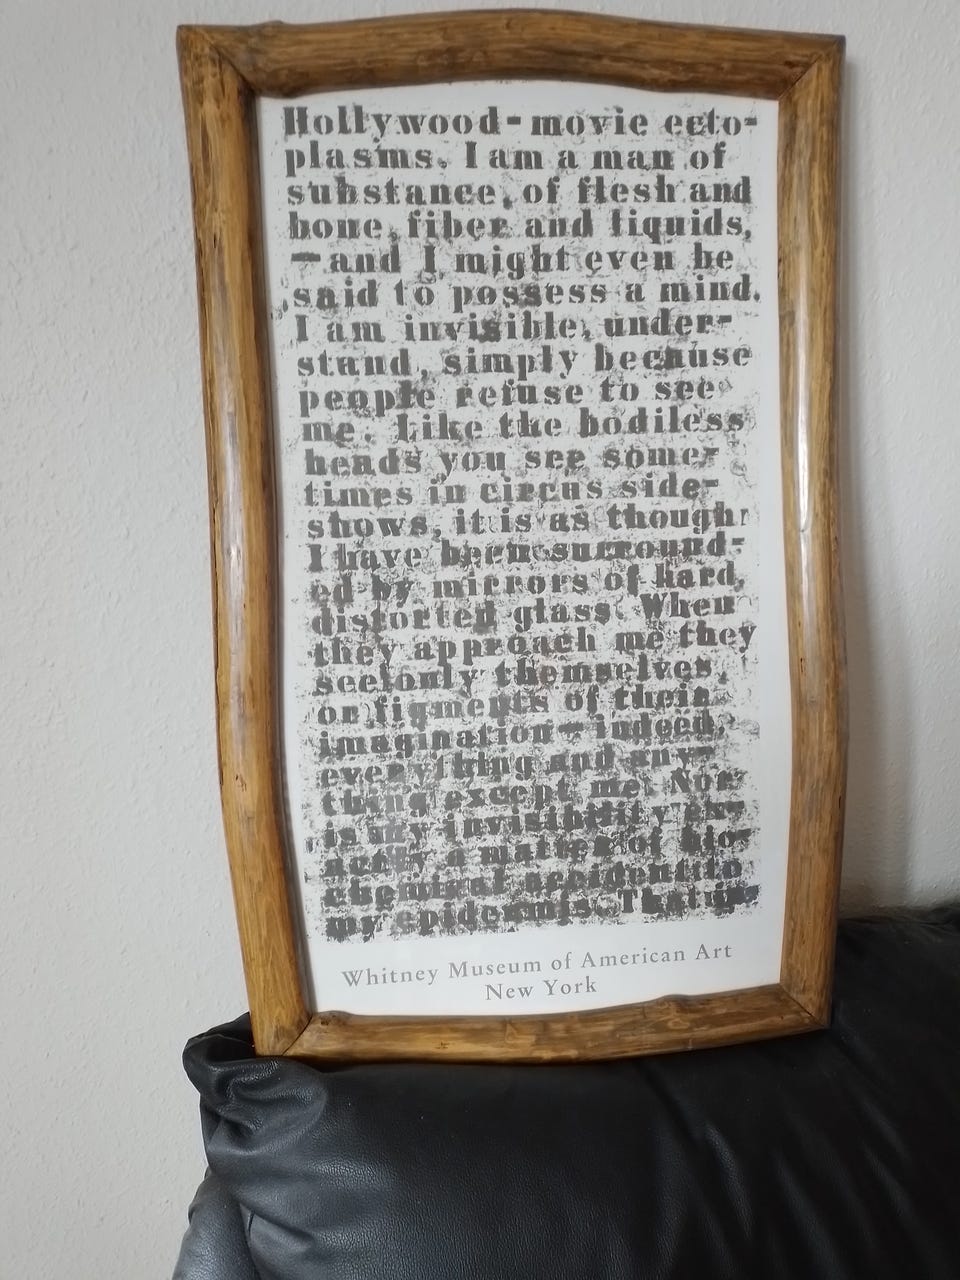 Hollywood-movie ecto-
plasms. I am a man of
substance, of flesh and
bone, fiber and liquids,
—and I might even be
said to possess a mind.
I am invisible, under-
stand, simply because
people refuse to see
me. Like the bodiless
heads you see some-
times in circus side-
shows, it is as though
I have been surround-
ed by mirrors of hard,
distorted glass. When
they approach me they
see only themselves,
or figments of their
imagination— indeed,
everything and any-
thing except me. Nor
is my invisibility ex-
actly a matter of bio-
chemical accident to
my epidermis. That in-
Whitney Museum of American Art
New York